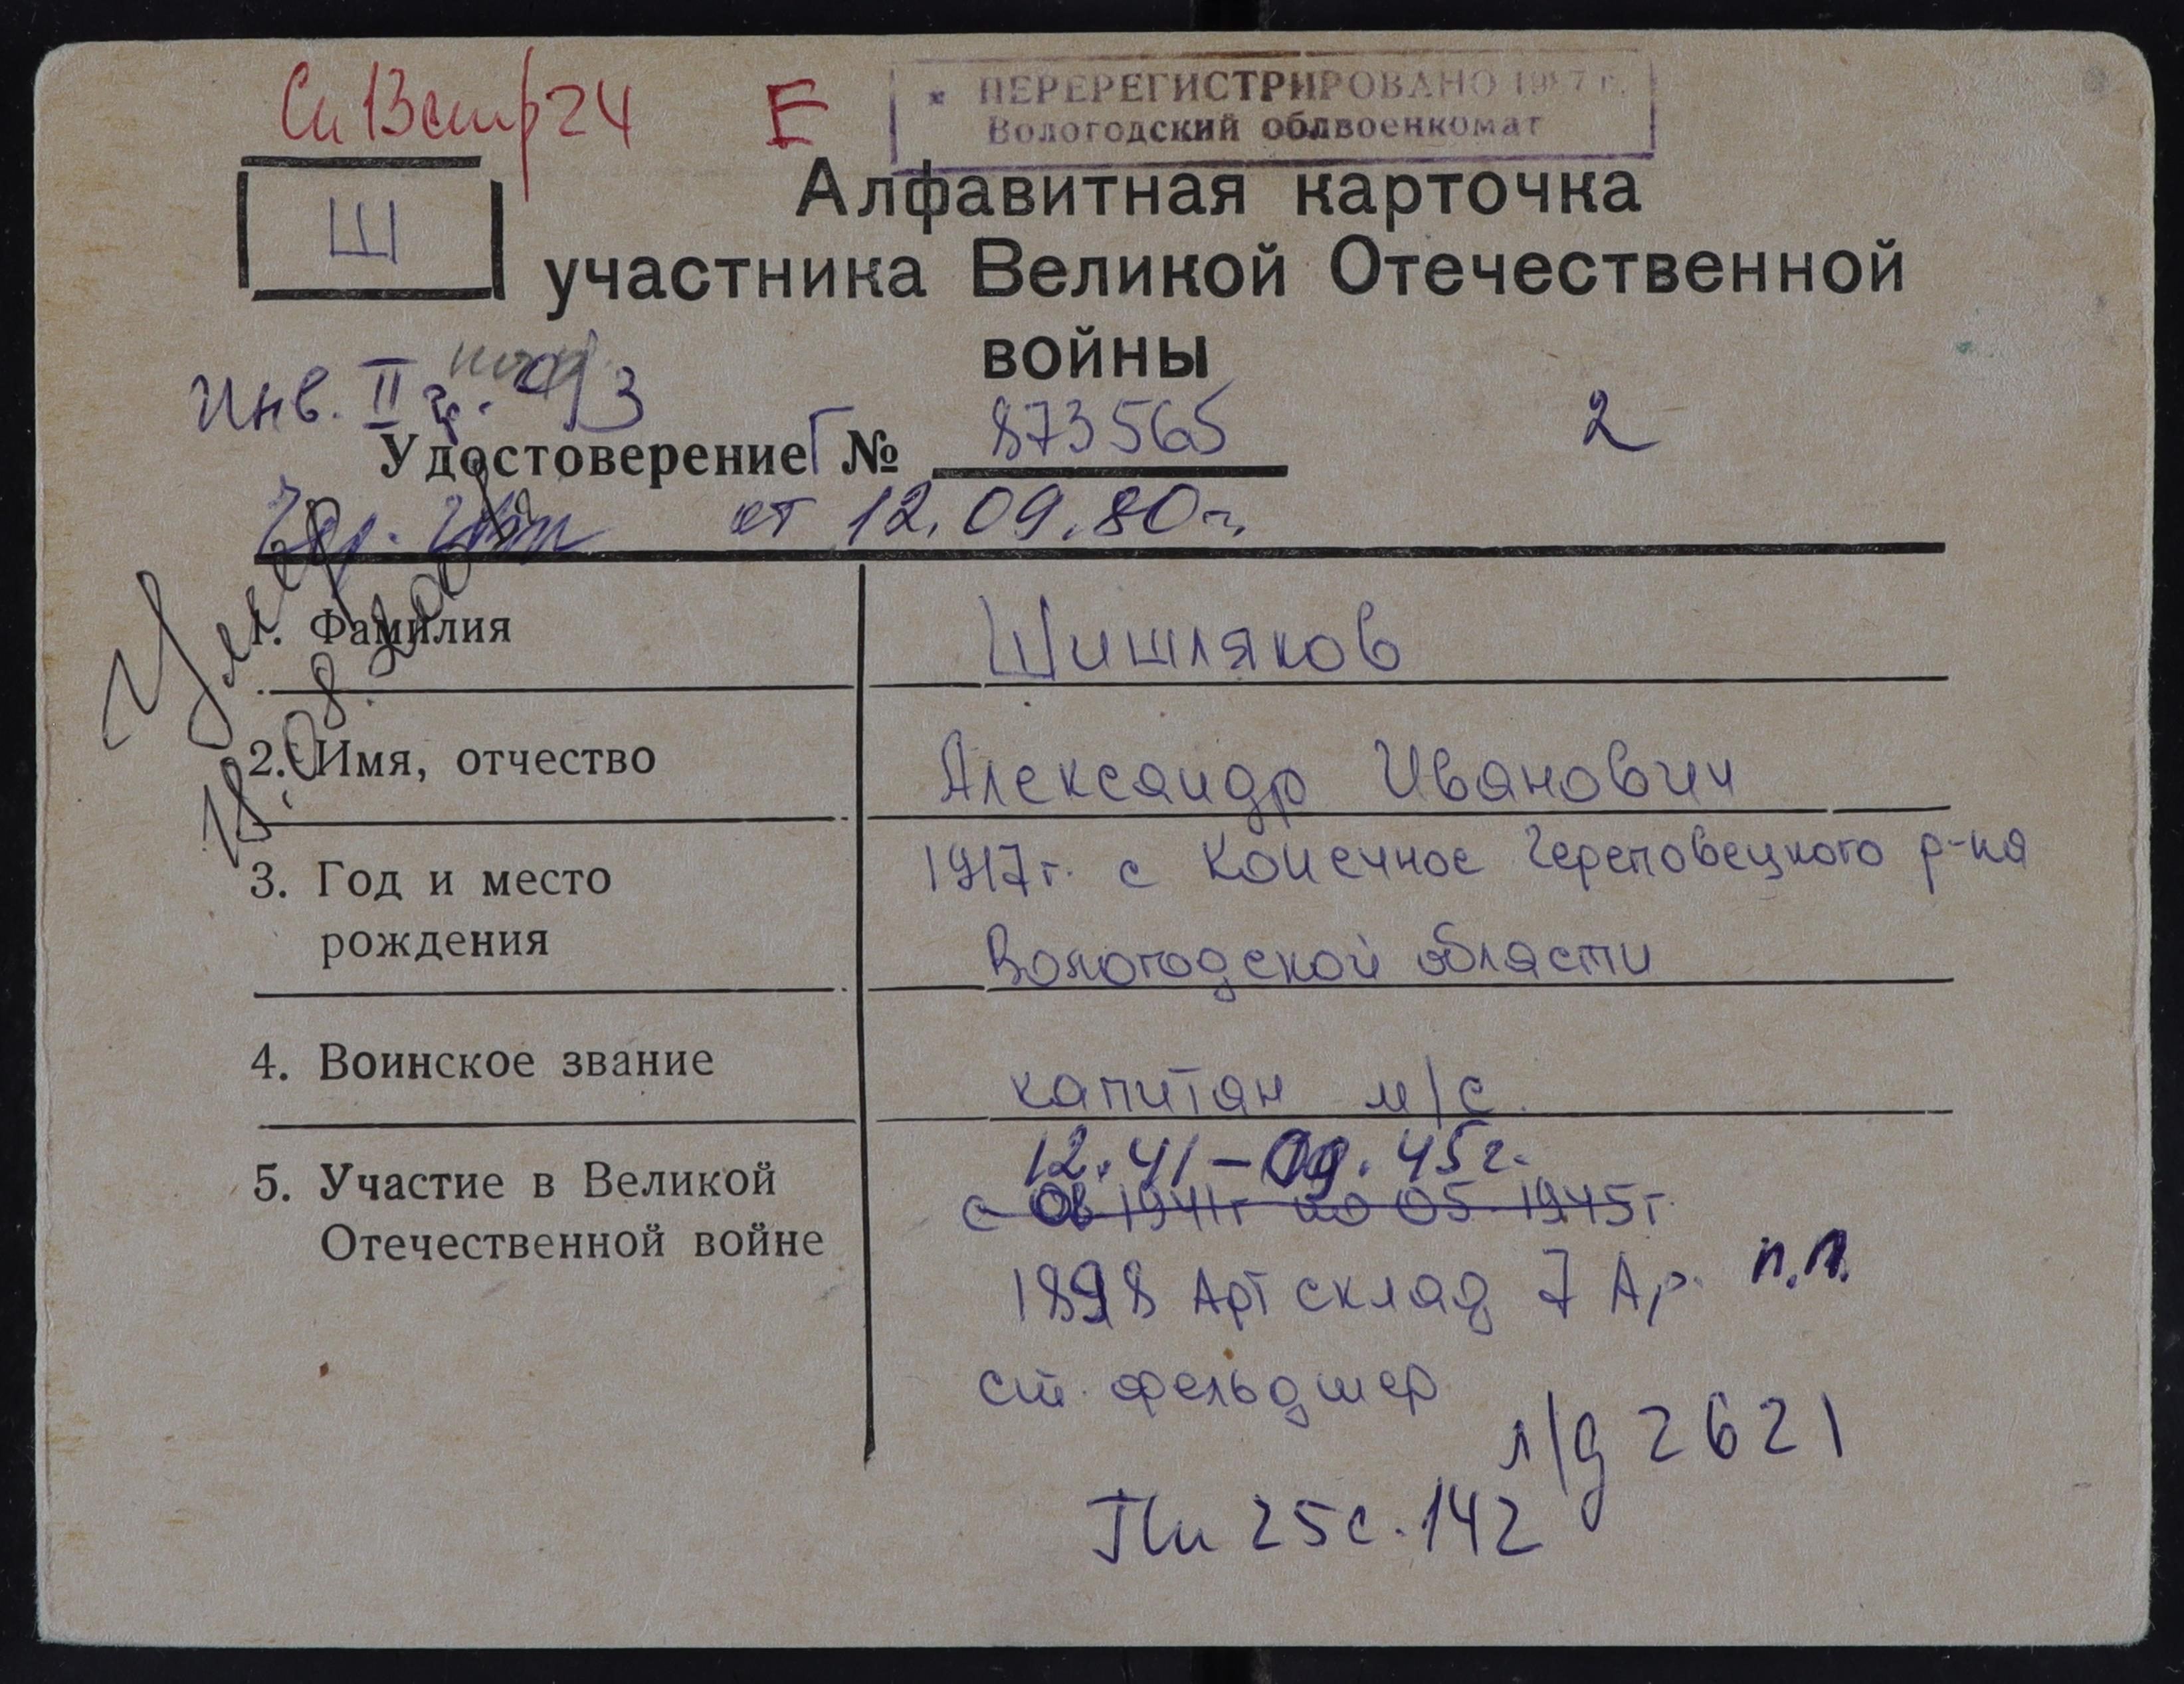 Сп 13 стр 24 Е
ПЕРЕРЕГИСТРИРОВАНО 1987 г.
Вологодский облвоенкомат
Ш
Алфавитная карточка
участника Великой Отечественной
войны
Инв. II гр. 2
Удостоверение Г № 873565
от 12.09.80г.
Умер
1. Фамилия Шишляков
2. Имя, отчество Александр Иванович
3. Год и место 1917г. с Конечное Череповецкого р-на
рождения Вологодской области
4. Воинское звание капитан м/с.
12.41-09.45г.
5. Участие в Великой с 06 1941г по 05 1945г.
Отечественной войне 1898 Арт склад 7 Ар. п.п.
ст. фельдшер
л/д 2621
25 с. 142